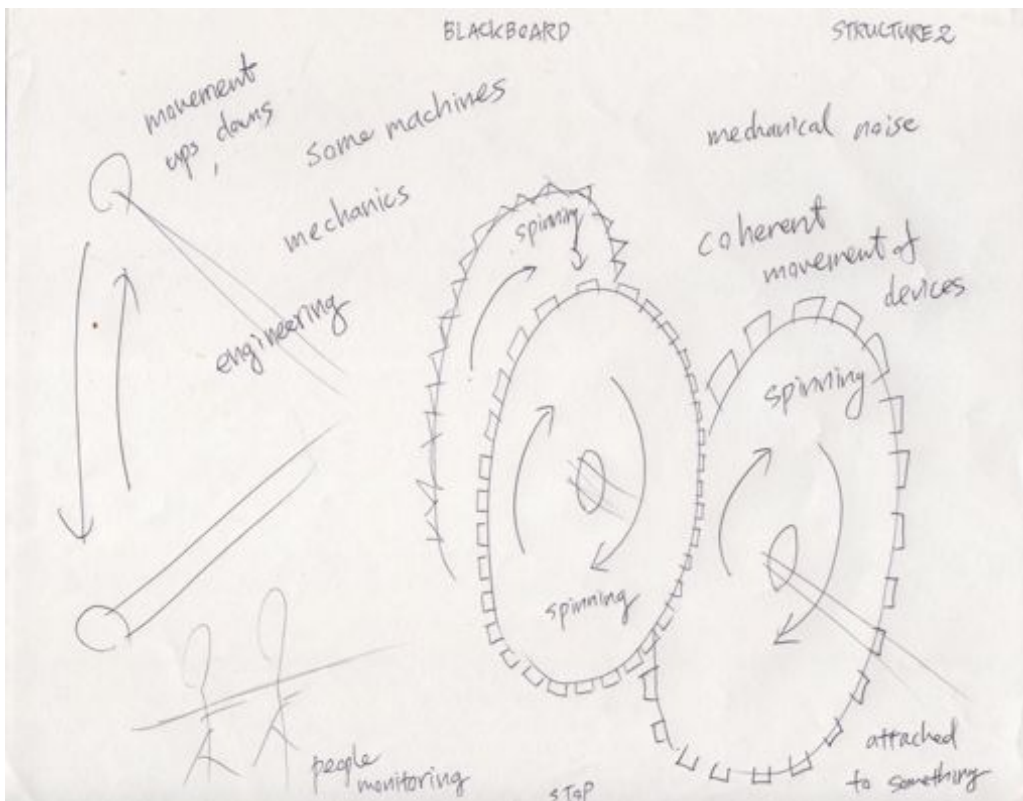 BLACKBOARD
STRUCTURE 2
movement
ups, downs
some machines
mechanics
engineering
mechanical noise
coherent
movement of
devices
spinning
spinning
spinning
people
monitoring
STOP
attached
to something